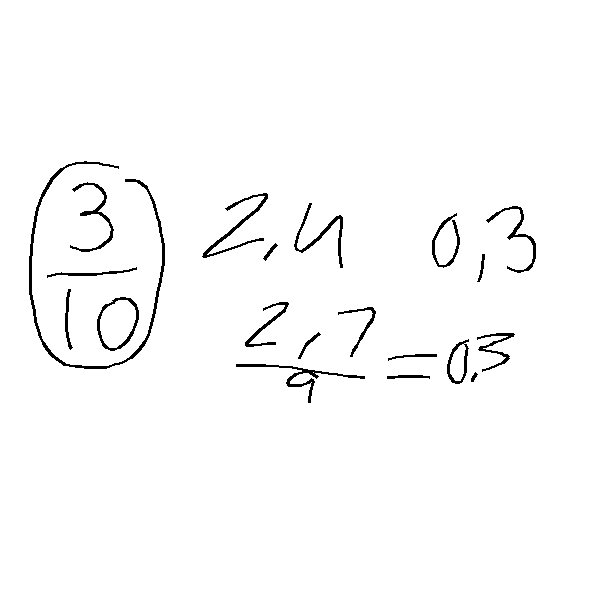 3/10 2,4 0,3
2,7/9 =0,3